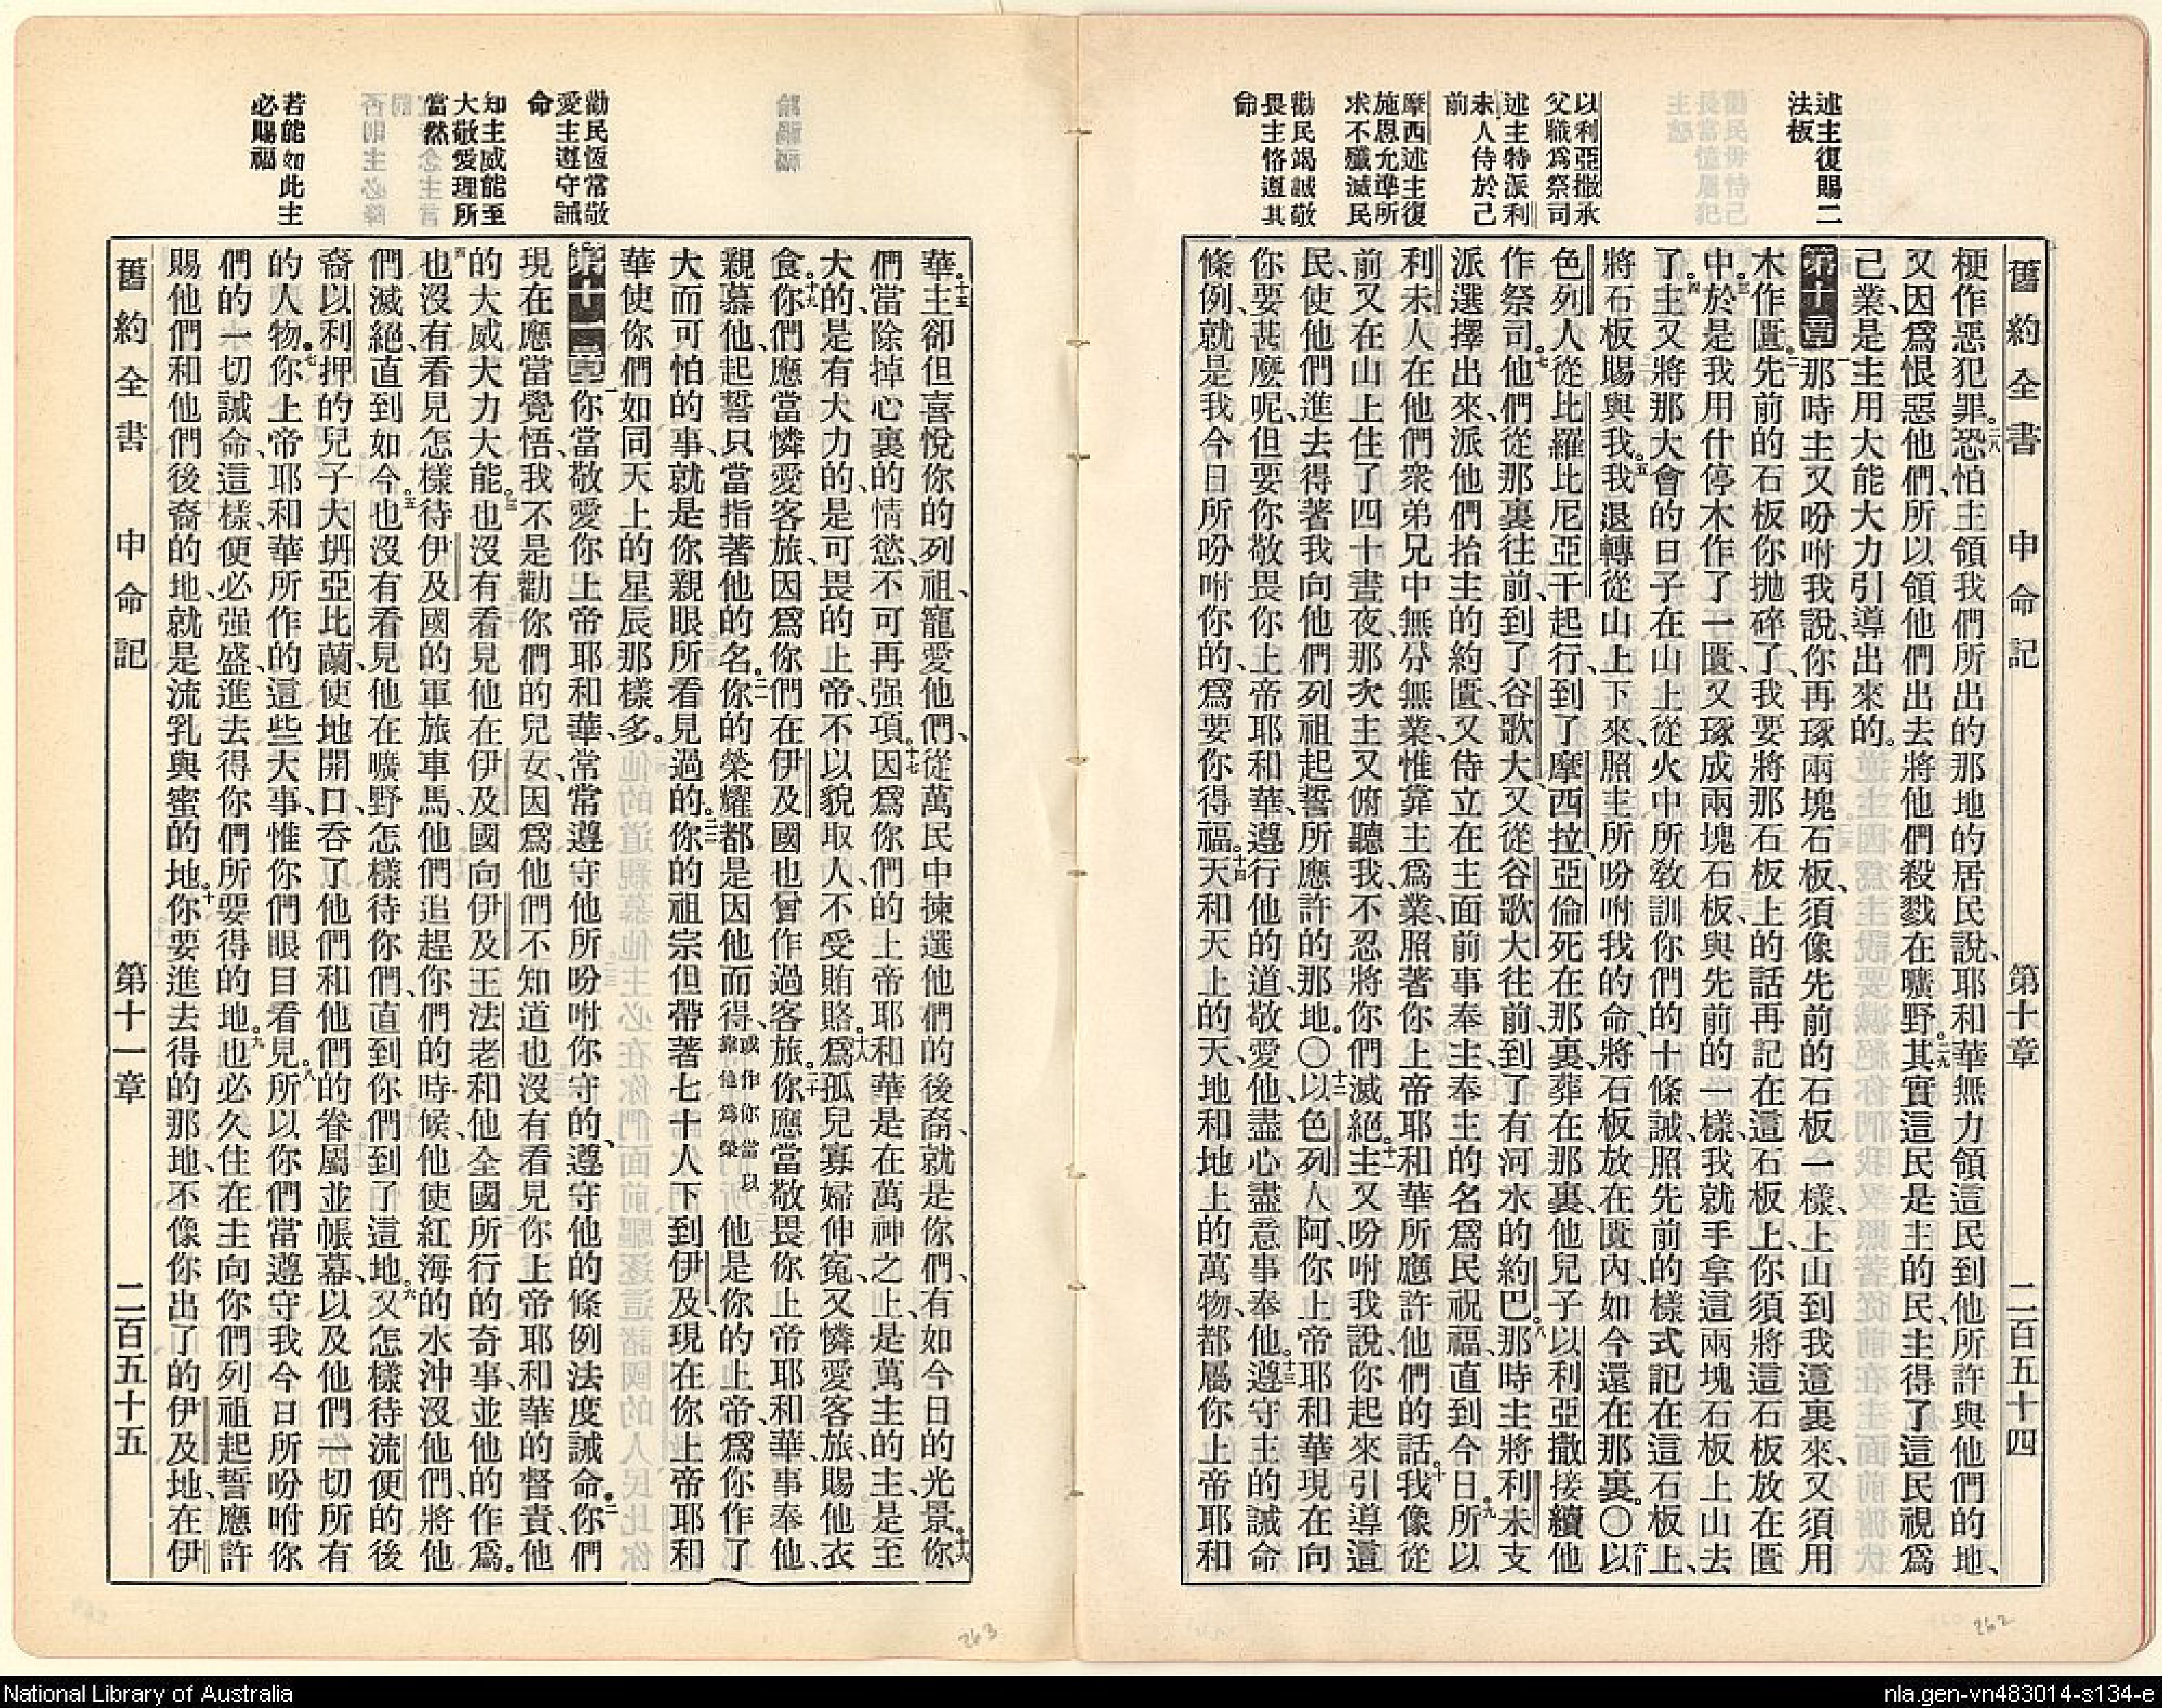 述主復賜二
法板
以利亞撒承
父職爲祭司
述主特派利
未人侍於己
前
摩西述主復
施恩允準所
求不殲滅民
勸民竭誠敬
畏主恪遵其
命
舊約全書 申命記 第十章 二百五十四
梗作惡犯罪。二八恐怕主領我們所出的那地的居民說、耶和華無力領這民到他所許與他們的地、
又因爲恨惡他們、所以領他們出去將他們殺戮在曠野。二九其實這民是主的民、主得了這民視爲
己業、是主用大能大力引導出來的。
第十章 一那時主又吩咐我說、你再琢兩塊石板、須像先前的石板一樣、上山到我這裏來、又須用
木作匱。二先前的石板你拋碎了、我要將那石板上的話再記在這石板上、你須將這石板放在匱
中。三於是我用什停木作了一匱、又琢成兩塊石板、與先前的一樣、我就手拿這兩塊石板上山去
了。四主又將那大會的日子在山上從火中所教訓你們的十條誡、照先前的樣式記在這石板上、
將石板賜與我。五我退轉從山上下來、照主所吩咐我的命、將石板放在匱內、如今還在那裏。〇六以
色列人從比羅比尼亞干起行、到了摩西拉、亞倫死在那裏、葬在那裏、他兒子以利亞撒接續他
作祭司。七他們從那裏往前、到了谷歌大、又從谷歌大往前、到了有河水的約巴。八那時主將利未支
派選擇出來、派他們抬主的約匱、又侍立在主面前事奉主、奉主的名爲民祝福、直到今日。九所以
利未人在他們衆弟兄中無分無業、惟靠主爲業、照著你上帝耶和華所應許他們的話。十我像從
前又在山上住了四十晝夜、那次主又俯聽我、不忍將你們滅絕。十一主又吩咐我說、你起來引導這
民、使他們進去得著我向他們列祖起誓所應許的那地。〇十二以色列人阿、你上帝耶和華現在向
你要甚麼呢、但要你敬畏你上帝耶和華、遵行他的道、敬愛他、盡心盡意事奉他。十三遵守主的誡命
條例、就是我今日所吩咐你的、爲要你得福。十四天和天上的天、地和地上的萬物、都屬你上帝耶和
勸民恆常敬
愛主遵守誡
命
知主威能至
大敬愛理所
當然
若能如此主
必賜福
華。十五主卻但喜悅你的列祖、寵愛他們、從萬民中揀選他們的後裔、就是你們、有如今日的光景。十六你
們當除掉心裏的情慾、不可再强項。十七因爲你們的上帝耶和華是在萬神之上、是萬主的主、是至
大的、是有大力的、是可畏的上帝、不以貌取人、不受賄賂。十八爲孤兒寡婦伸寃、又憐愛客旅、賜他衣
食。十九你們應當憐愛客旅、因爲你們在伊及國也曾作過客旅。二十你應當敬畏你上帝耶和華、事奉他、
親慕他、起誓只當指著他的名。二一你的榮耀都是因他而得、或作你當以靠他爲榮 他是你的上帝、爲你作了
大而可怕的事、就是你親眼所看見過的。二二你的祖宗但帶著七十人下到伊及、現在你上帝耶和
華使你們如同天上的星辰那樣多。
第十一章 一你當敬愛你上帝耶和華、常常遵守他所吩咐你守的、遵守他的條例法度誡命。二你們
現在應當覺悟、我不是勸你們的兒女、因爲他們不知道也沒有看見你上帝耶和華的督責、他
的大威大力大能。三也沒有看見他在伊及國向伊及王法老和他全國所行的奇事、並他的作爲。
四也沒有看見怎樣待伊及國的軍旅車馬、他們追趕你們的時候、他使紅海的水沖沒他們、將他
們滅絕、直到如今。五也沒有看見他在曠野怎樣待你們、直到你們到了這地。六又怎樣待流便的後
裔、以利押的兒子大坍亞比蘭、使地開口、吞了他們和他們的眷屬並帳幕、以及他們一切所有
的人物。七你上帝耶和華所作的這些大事、惟你們眼目看見。八所以你們當遵守我今日所吩咐你
們的一切誡命、這樣、便必强盛、進去得你們所要得的地。九也必久住在主向你們列祖起誓應許
賜他們和他們後裔的地、就是流乳與蜜的地。十你要進去得的那地、不像你出了的伊及地、在伊
舊約全書 申命記 第十一章 二百五十五
262
263
National Library of Australia
nla.gen-vn483014-s134-e